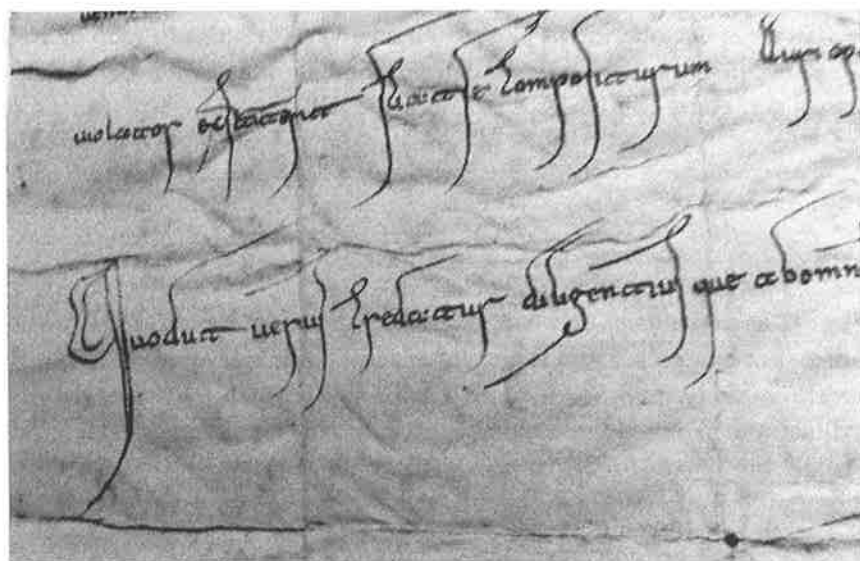 uiolator extiterit sciat se compositurum auri op
Quodut uerius credatur diligentiusque abomn